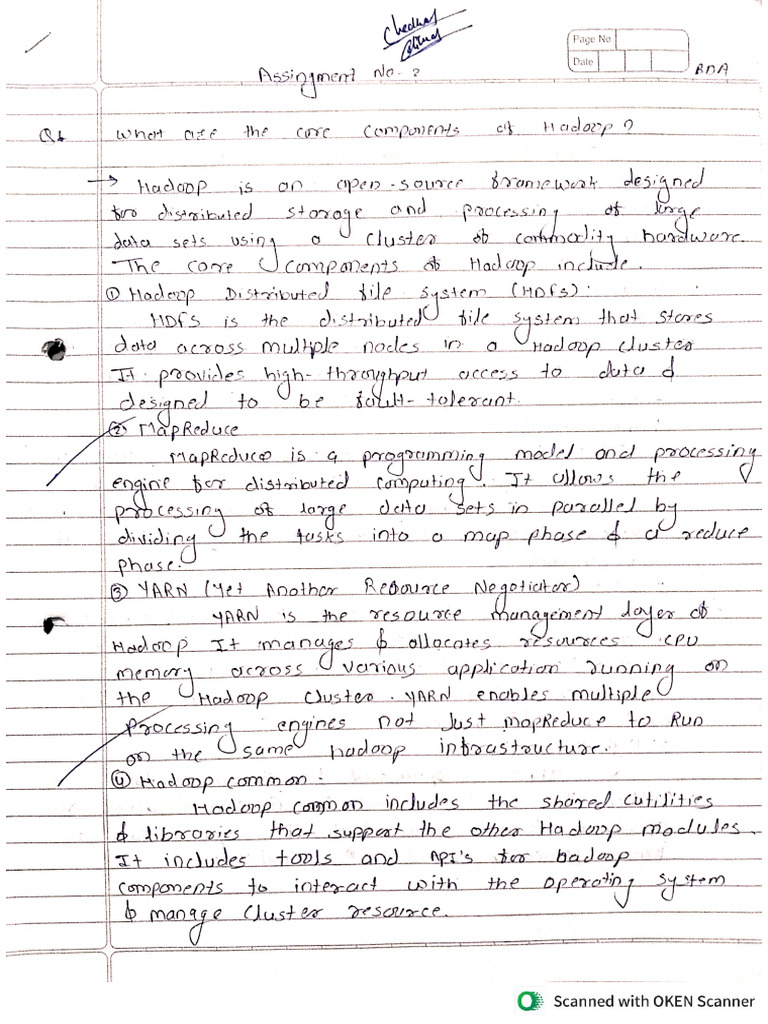 Page No
Date
BDA
Assingment No. 2
Q1 What are the core components of Hadoop?
→ Hadoop is an open-source framework designed
for distributed storage and processing of large
data sets using a cluster of commodity hardware.
The core components of Hadoop include.
① Hadoop Distributed file system (HDFS):
HDFS is the distributed file system that stores
data across multiple nodes in a Hadoop cluster
It provides high-throughput access to data &
designed to be fault-tolerant.
② MapReduce
MapReduce is a programming model and processing
engine for distributed computing. It allows the
processing of large data sets in parallel by
dividing the tasks into a map phase & a reduce
phase.
③ YARN (Yet Another Resource Negotiator)
YARN is the resource management layer of
Hadoop It manages & allocates resources CPU
memory across various application running on
the Hadoop cluster. YARN enables multiple
processing engines not Just mapReduce to Run
on the same hadoop infrastructure.
④ Hadoop common:
Hadoop common includes the shared utilities
& libraries that support the other Hadoop modules.
It includes tools and API's for hadoop
components to interact with the operating system
& manage cluster resource.
Scanned with OKEN Scanner